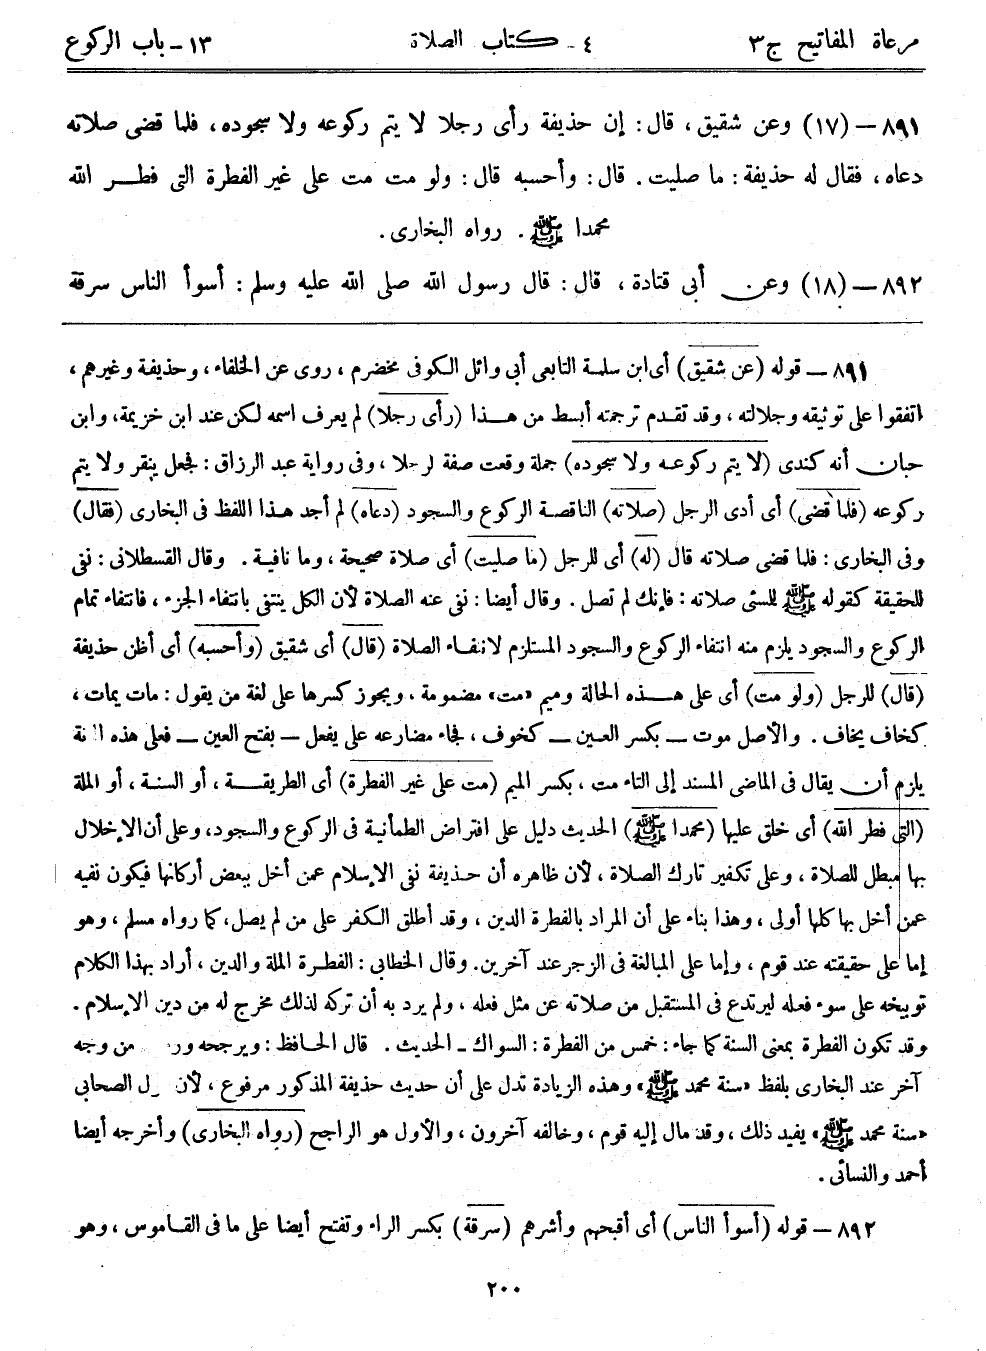 مرعاة المفاتيح ج٣ ٤ - كتاب الصلاة ١٣ - باب الركوع
٨٩١ – (١٧) وعن شقيق، قال: إن حذيفة رأى رجلا لا يتم ركوعه ولا سجوده، فلما قضى صلاته
دعاه، فقال له حذيفة: ما صليت. قال: وأحسبه قال: ولو مت مت على غير الفطرة التى فطر الله
محمدا ﷺ. رواه البخارى.
٨٩٢ – (١٨) وعن أبى قتادة، قال: قال رسول الله صلى الله عليه وسلم: أسوأ الناس سرقة
٨٩١ – قوله (عن شقيق) أى ابن سلمة التابعى أبى وائل الكوفى مخضرم، روى عن الخلفاء، وحذيفة وغيرهم،
اتفقوا على توثيقه وجلالته، وقد تقدم ترجمته أبسط من هذا (رأى رجلا) لم يعرف اسمه لكن عند ابن خزيمة، وابن
حبان أنه كندى (لا يتم ركوعه ولا سجوده) جملة وقعت صفة لرجلا، وفى رواية عبد الرزاق: فجعل ينقر ولا يتم
ركوعه (فلما قضى) أى أدى الرجل (صلاته) الناقصة الركوع والسجود (دعاه) لم أجد هذا اللفظ فى البخارى (فقال)
وفى البخارى: فلما قضى صلاته قال (له) أى للرجل (ما صليت) أى صلاة صحيحة، وما نافية. وقال القسطلانى: نفى
للحقيقة كقوله ﷺ للسئى صلاته: فإنك لم تصل. وقال أيضا: نفى عنه الصلاة لأن الكل ينتفى بانتفاء الجزء، فانتفاء تمام
الركوع والسجود يلزم منه انتفاء الركوع والسجود المستلزم لانتفاء الصلاة (قال) أى شقيق (وأحسبه) أى أظن حذيفة
(قال) للرجل (ولو مت) أى على هذه الحالة وميم «مت» مضمومة، ويجوز كسرها على لغة من يقول: مات يمات،
كخاف يخاف. والأصل موت – بكسر العين – كخوف، فجاء مضارعه على يفعل – بفتح العين – فعلى هذه
يلزم أن يقال فى الماضى المسند إلى التاء مت، بكسر الميم (مت على غير الفطرة) أى الطريقة، أو السنة، أو الملة
(التى فطر الله) أى خلق عليها (محمدا ﷺ) الحديث دليل على افتراض الطمأنية فى الركوع والسجود، وعلى أن الإخلال
بها مبطل للصلاة، وعلى تكفير تارك الصلاة، لأن ظاهره أن حذيفة نفى الإسلام عمن أخل ببعض أركانها فيكون نفيه
عمن أخل بها كلها أولى، وهذا بناء على أن المراد بالفطرة الدين، وقد أطلق الكفر على من لم يصل، كما رواه مسلم، وهو
إما على حقيقته عند قوم، وإما على المبالغة فى الزجر عند آخرين. وقال الخطابى: الفطرة الملة والدين، أراد بهذا الكلام
توبيخه على سوء فعله ليرتدع فى المستقبل من صلاته عن مثل فعله، ولم يرد به أن تركه لذلك مخرج له من دين الإسلام.
وقد تكون الفطرة بمعنى السنة كما جاء: خمس من الفطرة: السواك - الحديث. قال الحافظ: ويرجحه من وجه
آخر عند البخارى بلفظ «سنة محمد ﷺ» وهذه الزيادة تدل على أن حديث حذيفة المذكور مرفوع، لأن الصحابى
«سنة محمد ﷺ» يفيد ذلك، وقد مال إليه قوم، وخالفه آخرون، والأول هو الراجح (رواه البخارى) وأخرجه أيضا
أحمد والنسائى.
٨٩٢ – قوله (أسوأ الناس) أى أقبحهم وأشرهم (سرقة) بكسر الراء وتفتح أيضا على ما فى القاموس، وهو
٢٠٠